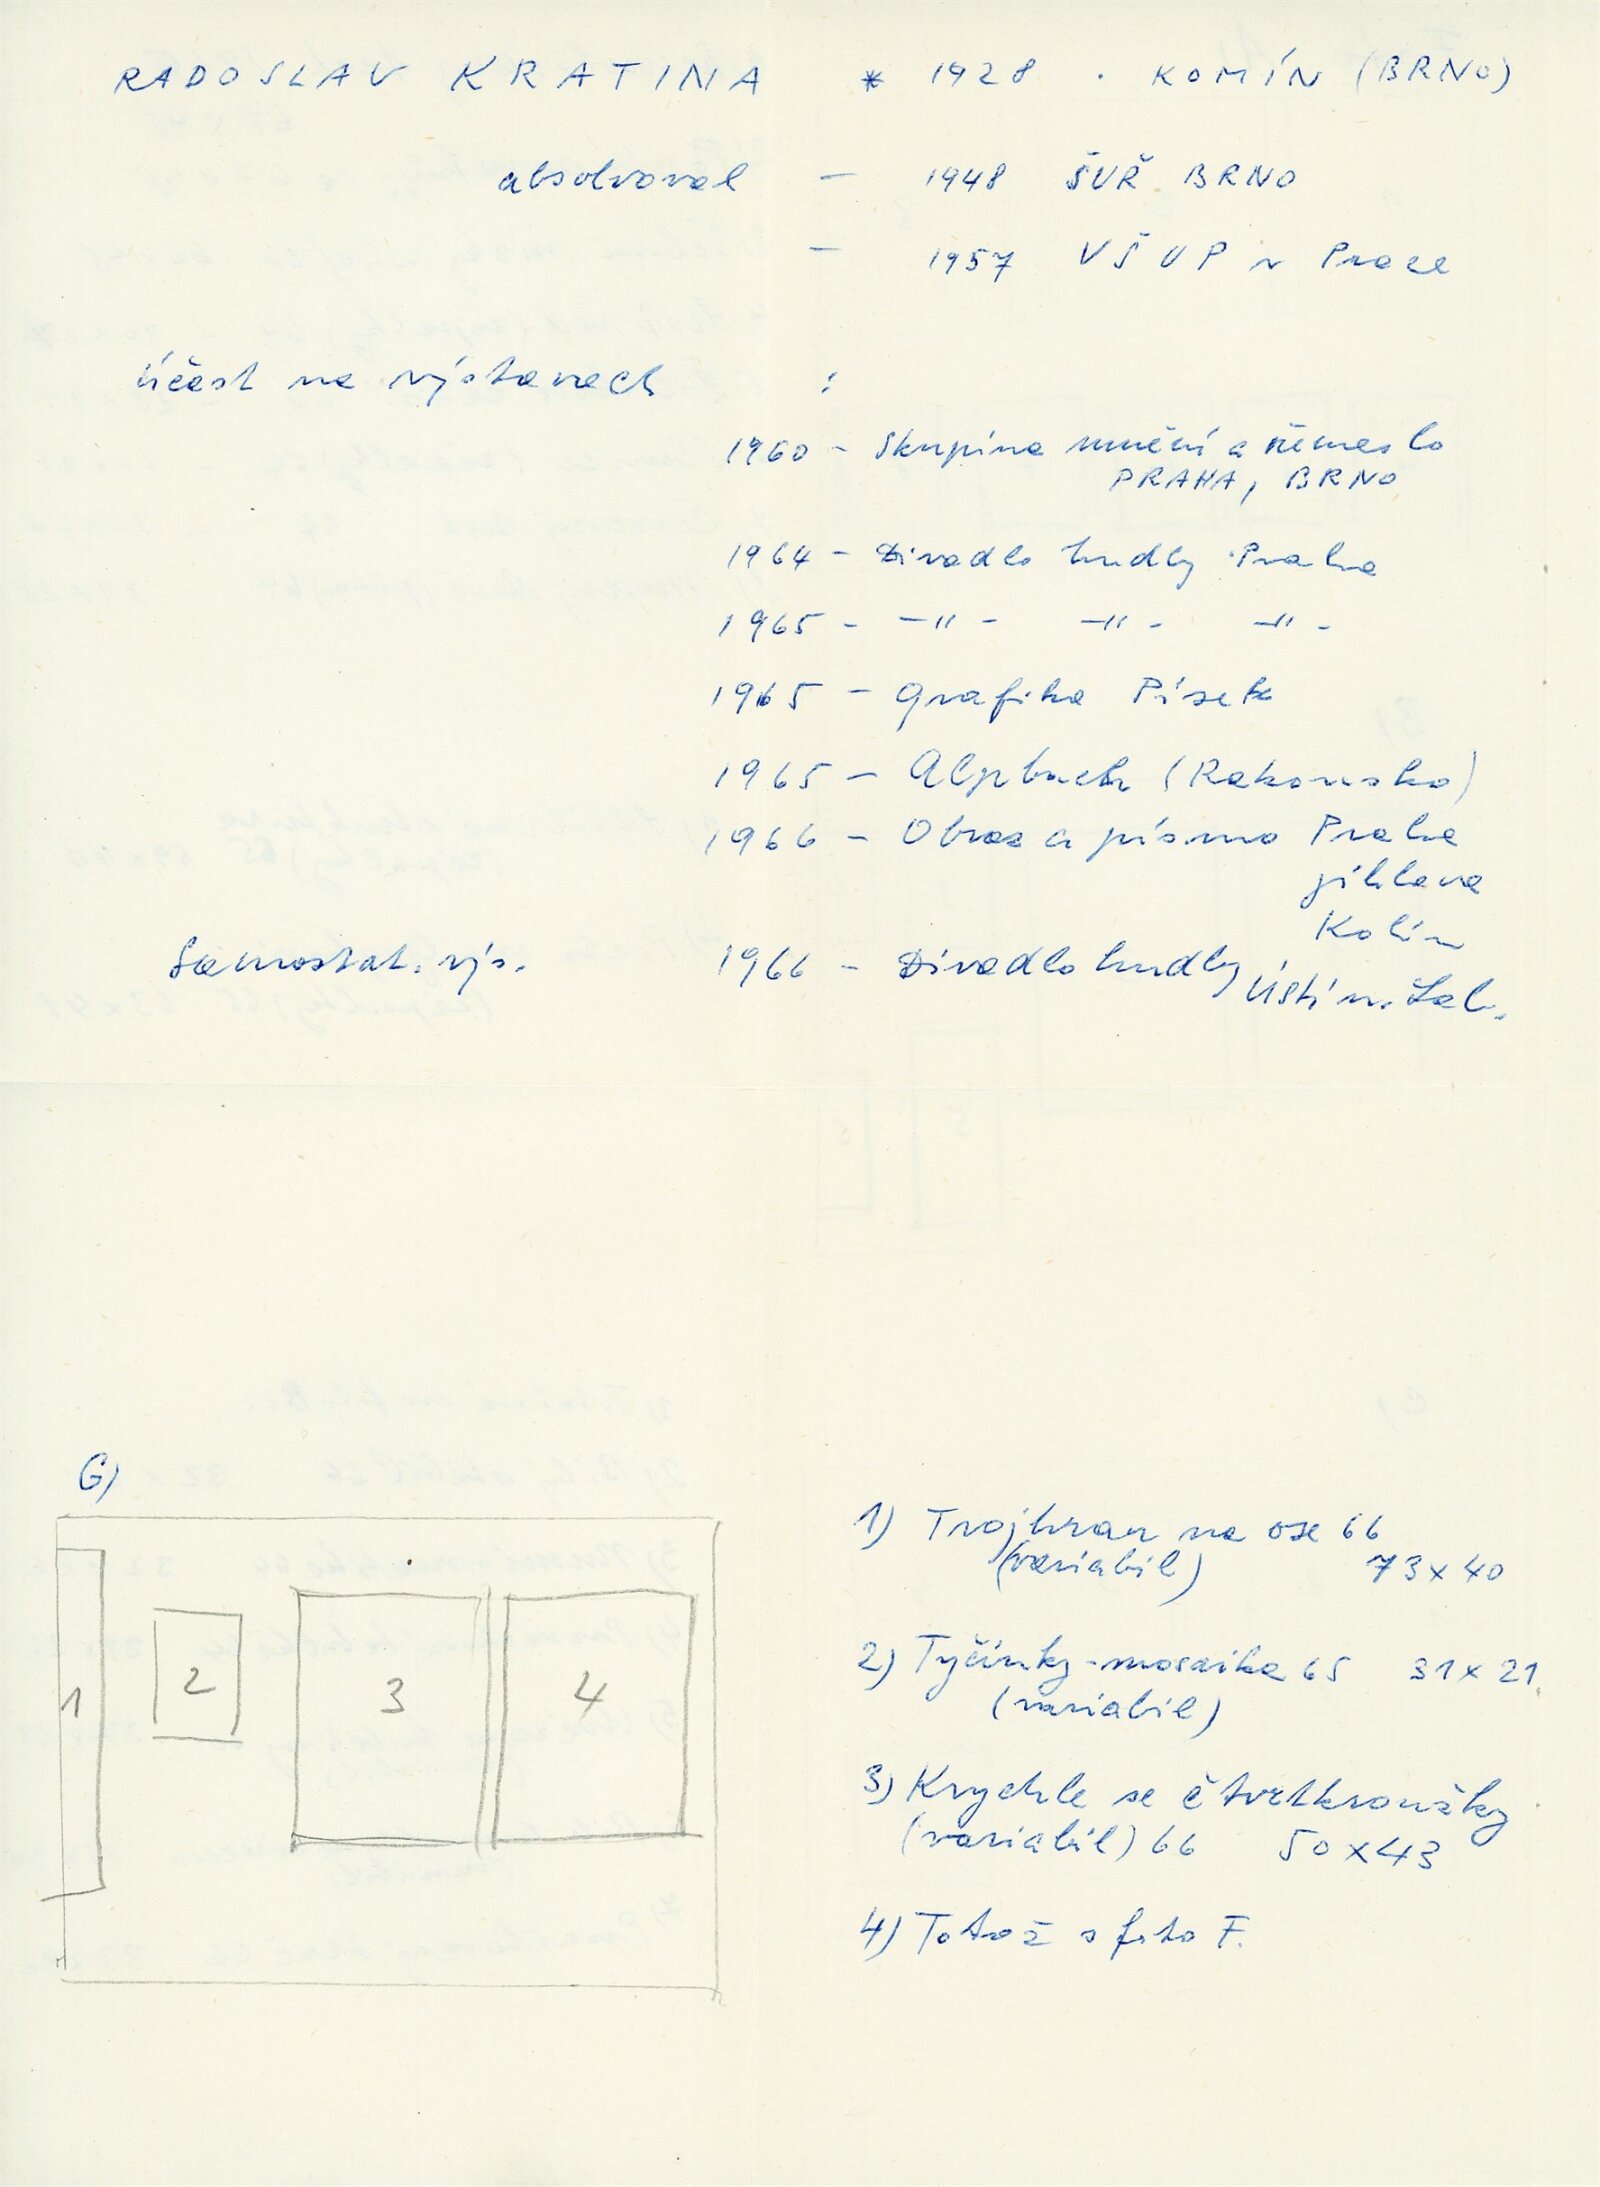 RADOSLAV KRATINA * 1928 . KOMÍN (BRNO)
absolvoval — 1948 ŠUŘ BRNO
— 1957 VŠUP v Praze
účast na výstavach :
1960 - Skupina umění a řemeslo
PRAHA, BRNO
1964 - Divadlo hudby Praha
1965 - —"- —"- —"-
1965 - Grafika Písek
1965 - Alpbach (Rakousko)
1966 - Obraz a písmo Praha
jihlava
Kolín
Samostat. výs. 1966 - Divadlo hudby Ústí n. Lab.
G)
1) Trojhran na ose 66
(variabil) 73 x 40
2) Tyčinky - mosaika 65 31 x 21
(variabil)
3) Krychle se čtvrtkroužky
(variabil) 66 50 x 43
4) Totož s foto F.
1
2
3
4